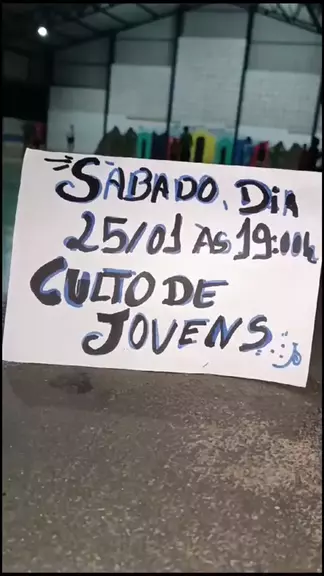 SÁBADO, DIA
25/01 ÀS 19:00h
CULTO DE
JOVENS